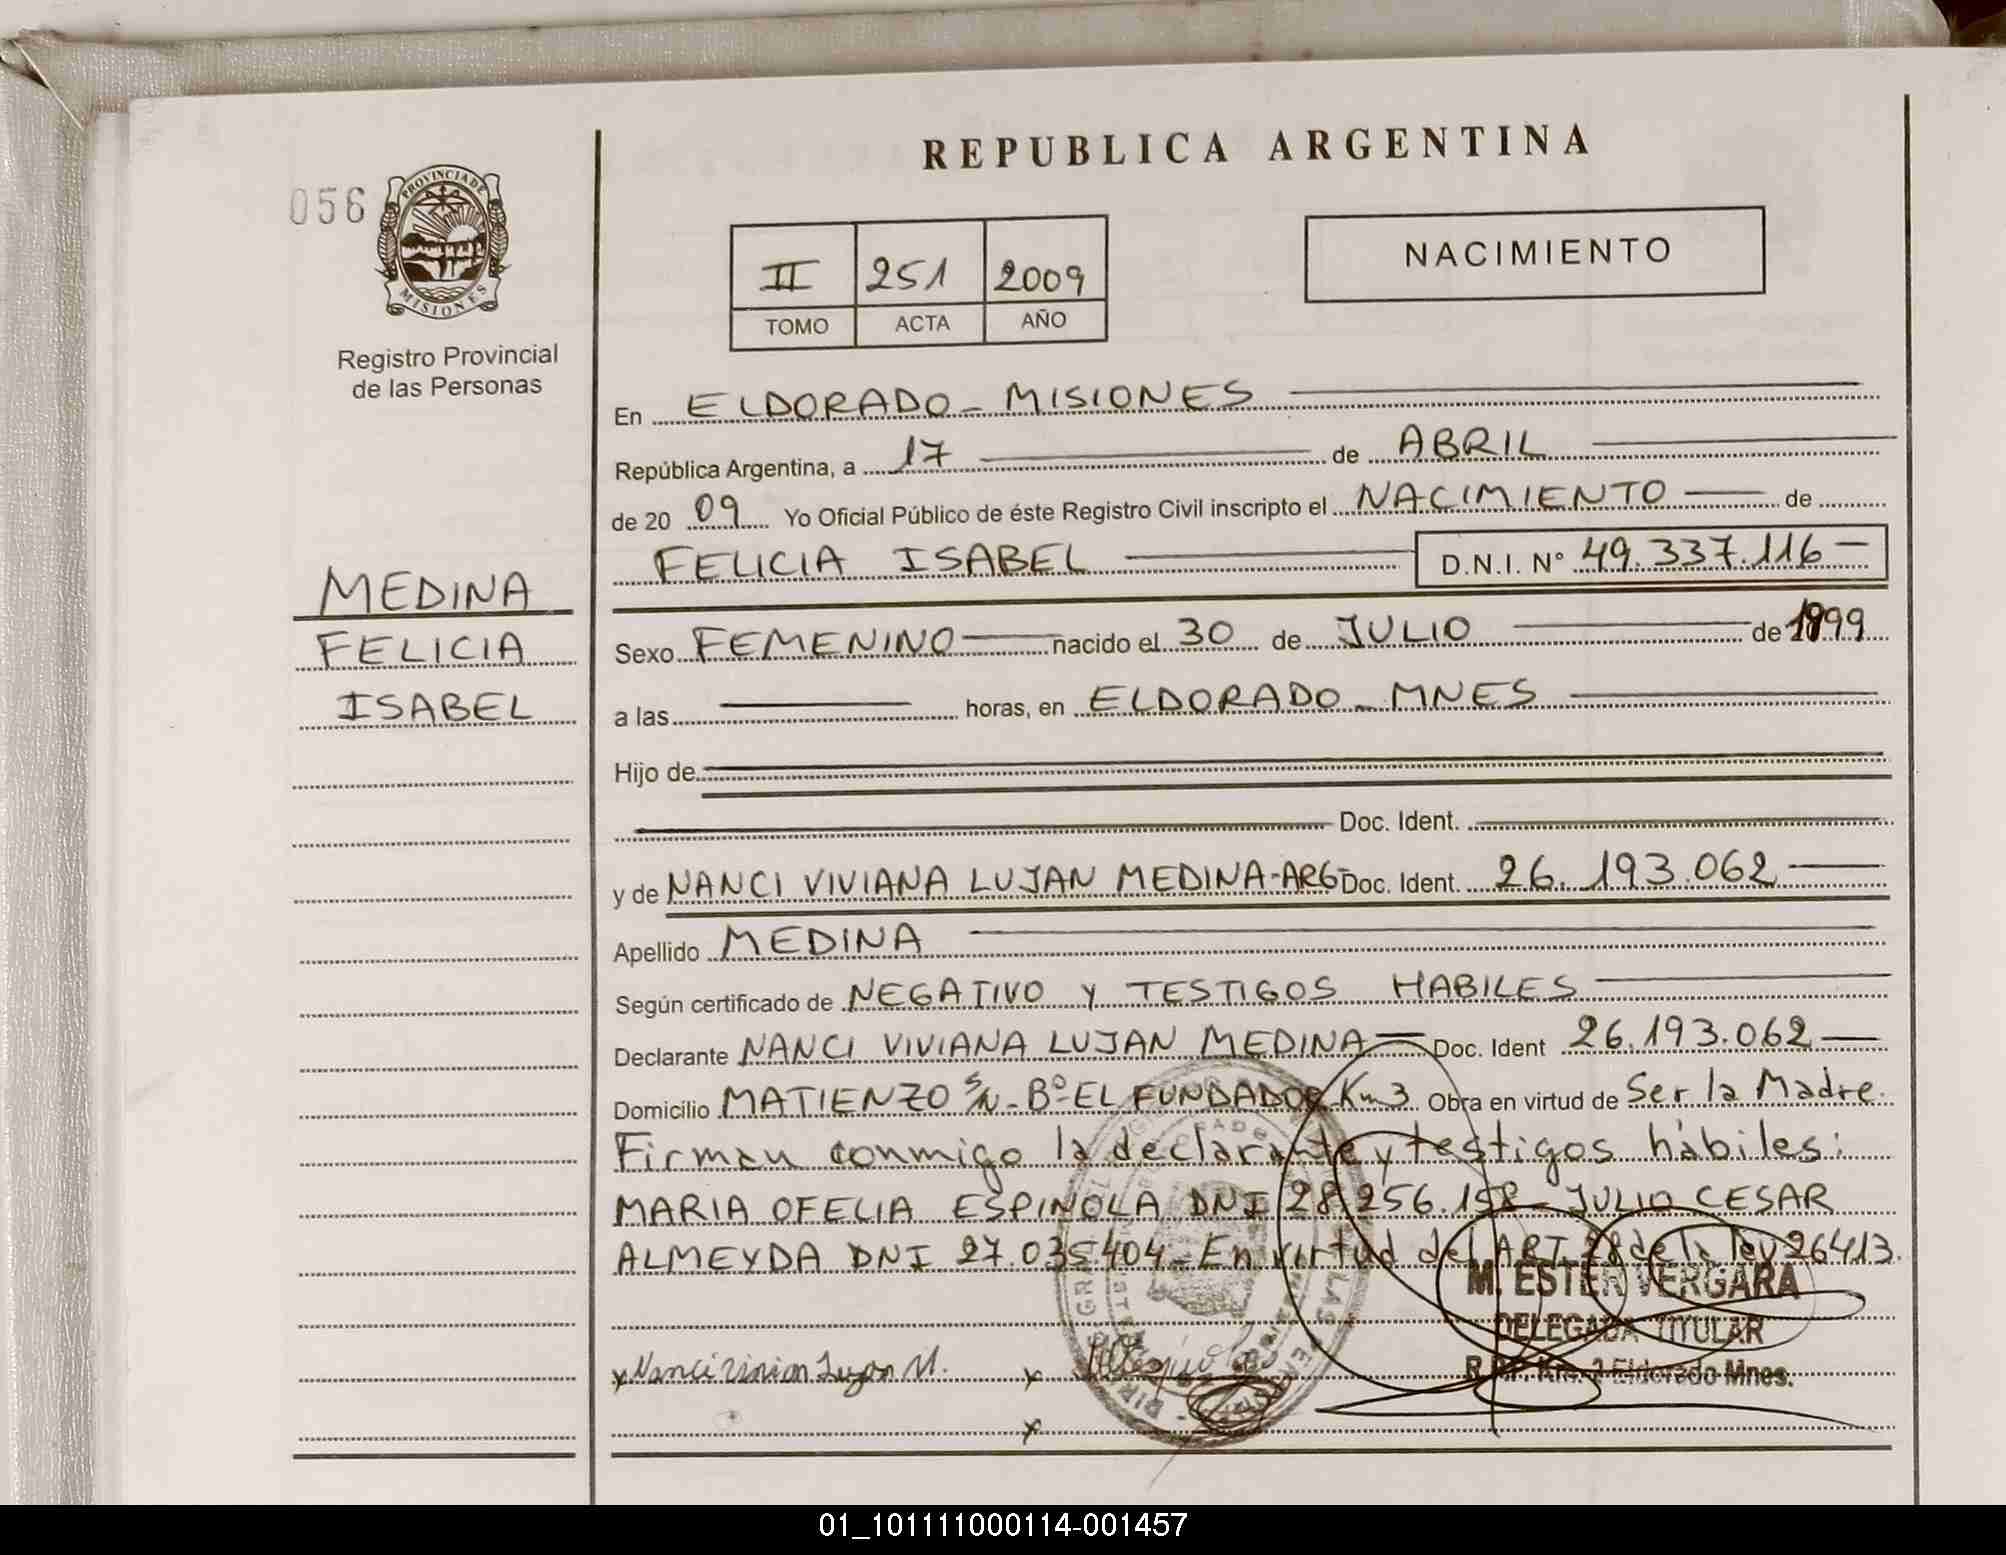 REPUBLICA ARGENTINA
056
PROVINCIA DE
MISIONES
Registro Provincial
de las Personas
II 251 2009
TOMO ACTA AÑO
NACIMIENTO
En ELDORADO - MISIONES
República Argentina, a 17 de ABRIL
de 20 09 Yo Oficial Público de éste Registro Civil inscripto el NACIMIENTO de
FELICIA ISABEL D.N.I. Nº 49.337.116
MEDINA
FELICIA
ISABEL
Sexo FEMENINO nacido el 30 de JULIO de 1999
a las horas, en ELDORADO - MNES
Hijo de
Doc. Ident.
y de NANCI VIVIANA LUJAN MEDINA-ARG Doc. Ident. 26.193.062
Apellido MEDINA
Según certificado de NEGATIVO Y TESTIGOS HABILES
Declarante NANCI VIVIANA LUJAN MEDINA Doc. Ident 26.193.062
Domicilio MATIENZO S/N - Bº EL FUNDADOR Km 3 Obra en virtud de Ser la Madre.
Firman conmigo la declarante y testigos hábiles:
MARIA OFELIA ESPINOLA DNI 28.256.158 - JULIO CESAR
ALMEYDA DNI 27.035.404 - En virtud del ART. 28 de la ley 26413.
M. ESTER VERGARA
DELEGADA TITULAR
Eldorado Mnes.
x
x
x
01_101111000114-001457